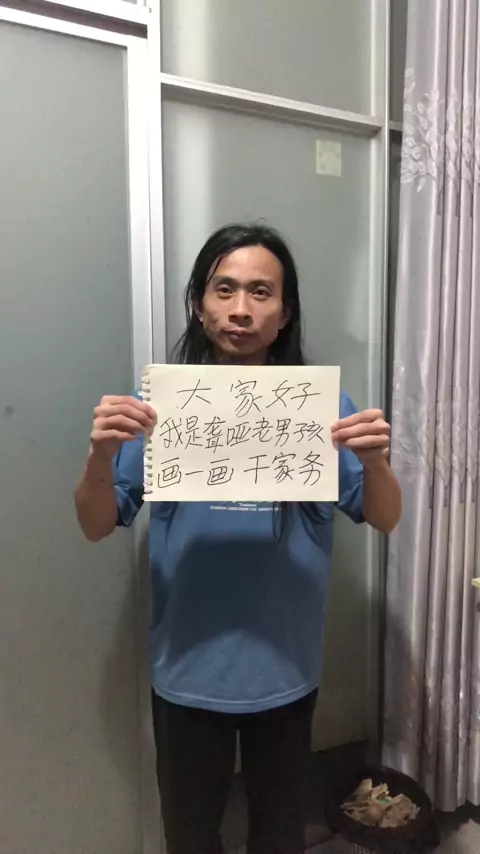 大家好
我是聋哑老男孩
画一画 干家务